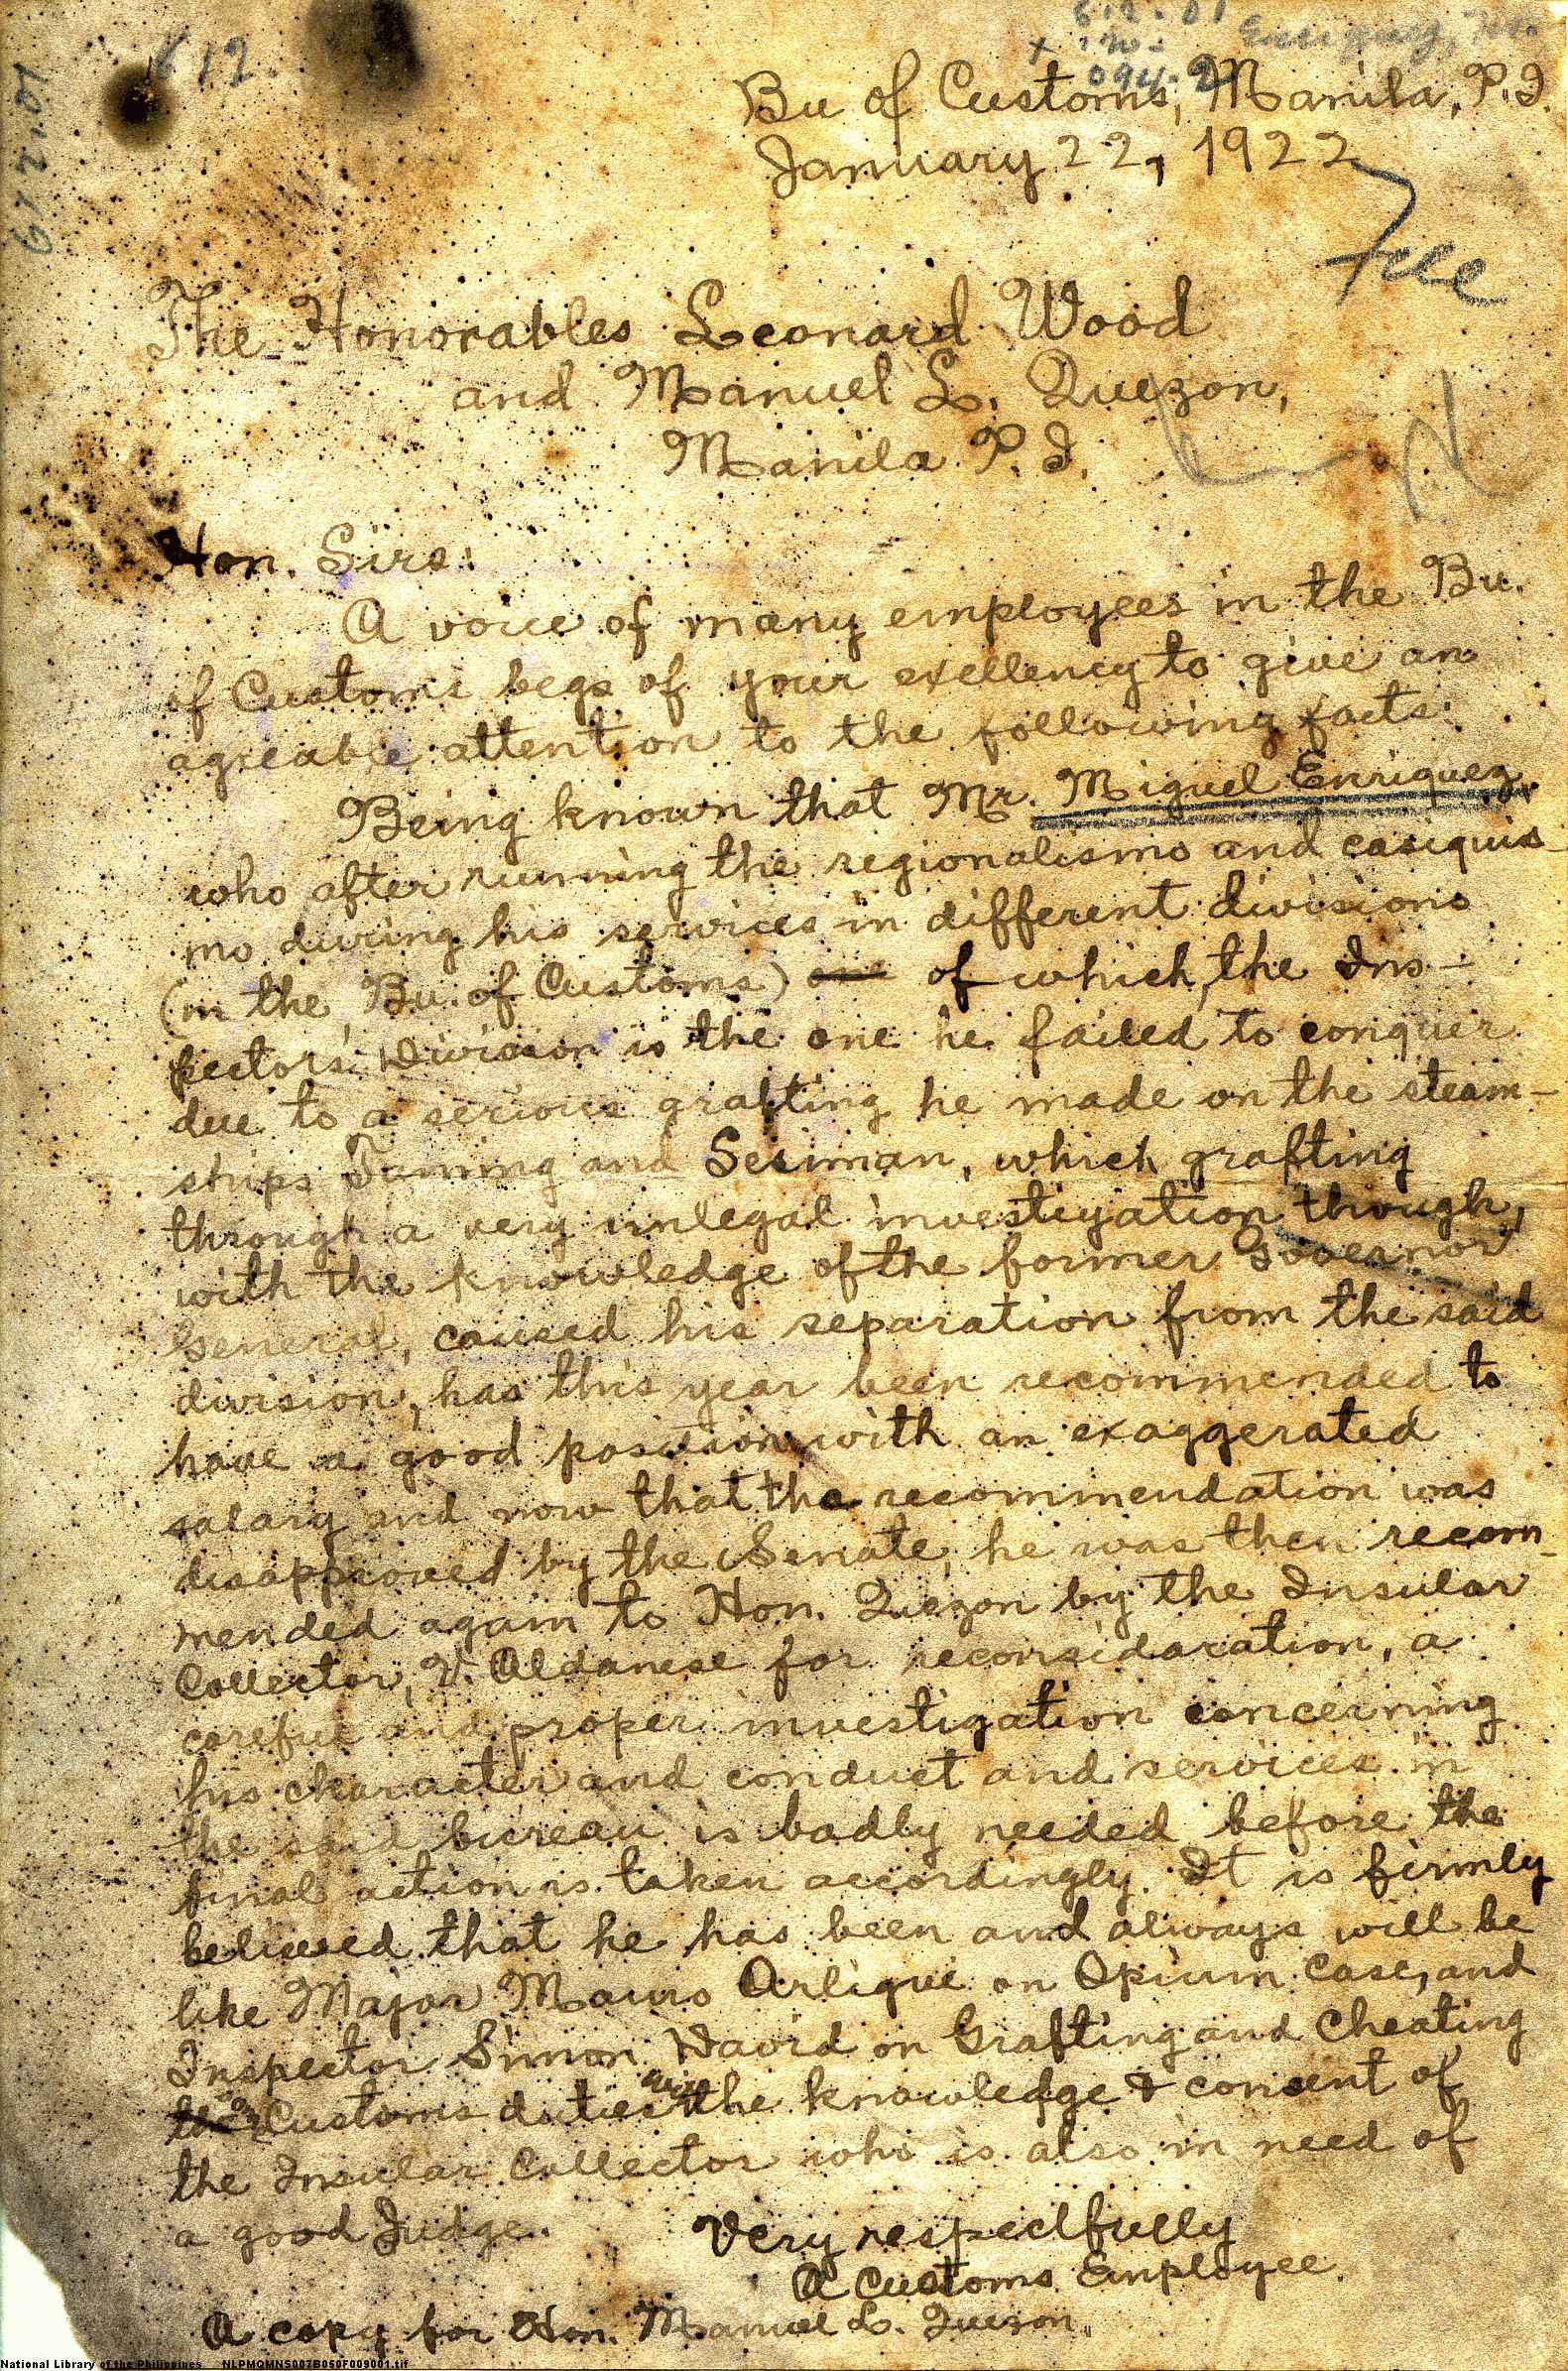 612.
612.01
Bu of Customs, Manila, P.I.
January 22, 1922
File
The Honorables Leonard Wood
and Manuel L. Quezon,
Manila P.I.
Hon. Sirs:
A voice of many employees in the Bu.
of Customs begs of your exellency to give an
agreable attention to the following facts:
Being known that Mr. Miguel Enriquez,
who after running the regionalismo and casiquis-
mo during his services in different divisions
(in the Bu. of Customs) of which, the Ins-
pectors' Division is the one he failed to conquer
due to a serious grafting he made on the steam-
ships and Sesiman, which grafting
through a very unlegal investigation though,
with the knowledge of the former Governor
General, caused his separation from the said
division, has this year been recommended to
have a good position with an exaggerated
salary and now that the recommendation was
disapproved by the Senate, he was then recom-
mended again to Hon. Quezon by the Insular
Collector, V. Aldanese for reconsidaration, a
careful and proper investigation concerning
his character and conduct and services in
the said bureau is badly needed before the
final action is taken accordingly. It is firmly
believed that he has been and always will be
like Major Mauro Arligue on Opium Case, and
Inspector Simon David on Grafting and Cheating
of Customs duties with the knowledge & consent of
the Insular Collector who is also in need of
a good Judge.
Very respectfully
A Customs Employee.
A copy for Hon. Manuel L. Quezon.
National Library of the Philippines NLPMQMNS007B050F009001.tif